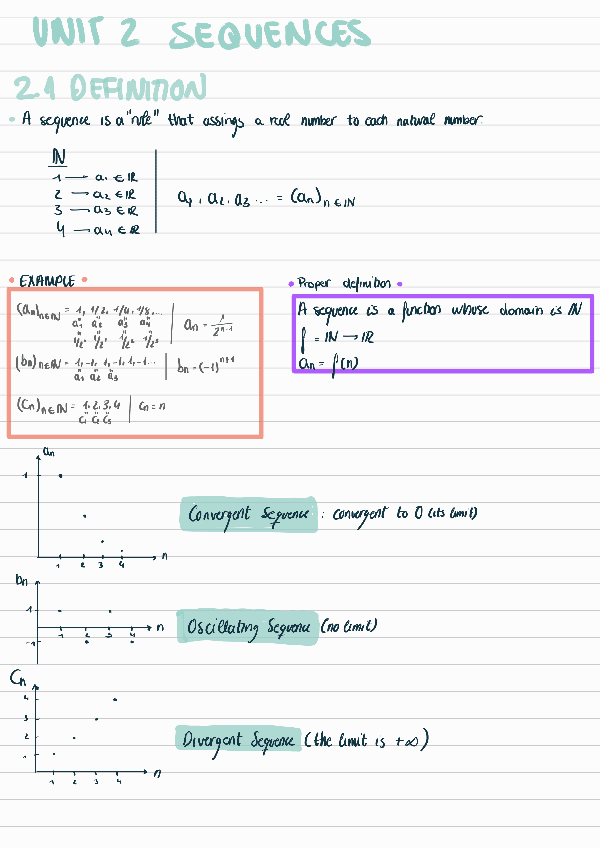 UNIT 2 SEQUENCES
2.1 DEFINITION
• A sequence is a "rule" that assings a real number to each natural number.
ℕ
1 → a₁ ∈ ℝ
2 → a₂ ∈ ℝ
3 → a₃ ∈ ℝ
4 → a₄ ∈ ℝ
a₁, a₂, a₃ ... = (aₙ)ₙ ∈ ℕ
• EXAMPLE •
(aₙ)ₙ∈ℕ = 1, 1/2, 1/4, 1/8, ... | aₙ = 1/2ⁿ⁻¹
a₁ a₂ a₃ a₄
1/2⁰ 1/2¹ 1/2² 1/2³
(bₙ)ₙ∈ℕ = 1, -1, 1, -1, 1, -1 ... | bₙ = (-1)ⁿ⁺¹
a₁ a₂ a₃
(Cₙ)ₙ∈ℕ = 1, 2, 3, 4 | cₙ = n
c₁ c₂ c₃
• Proper definition •
A sequence is a function whose domain is ℕ
f = ℕ → ℝ
aₙ = f(n)
aₙ
1
1 2 3 4 n
Convergent Sequence : convergent to 0 (its limit)
bₙ
1
1 2 3 4 n
-1
Oscillating Sequence (no limit)
Cₙ
4
3
2
1
1 2 3 4 n
Divergent Sequence (the limit is +∞)